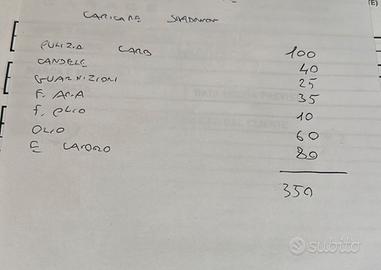 CARICARE
PULIZIA CARB 100
CANDELE 40
GUARNIZIONI 25
F. ARIA 35
F. OLIO 10
OLIO 60
E LAVORO 80
350
subito